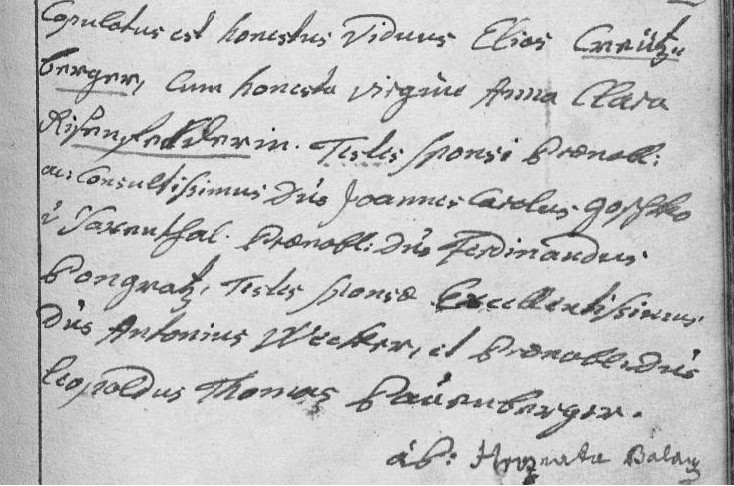 Copulatus est honestus Viduus Elias Creütz„
berger, Cum honesta virgine Anna Clara
Risenfelderin. Testes sponsi Prænobl:
ac Consultissimus Dns Joannes Carolus Goschko
à Saxenthal. Prænobl: Dns Ferdinandus
Pongratz, Testes sponsæ Excellentissimus
Dns Antonius Wecker, et Prænobl: Dns
Leopoldus Thomas Paürnberger.
ab: